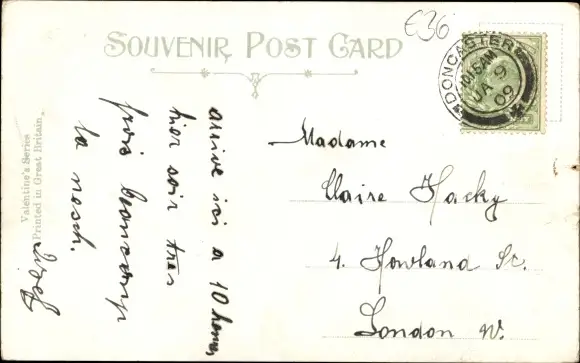 €36
SOUVENIR POST CARD
DONCASTER
10.15AM
JA 9
09
Valentine's Series
Printed in Great Britain.
arrive ici a 10 heures
hier soir très
fois beaucoup
la
Madame
Claire Hacky
4. Howland St.
London W.